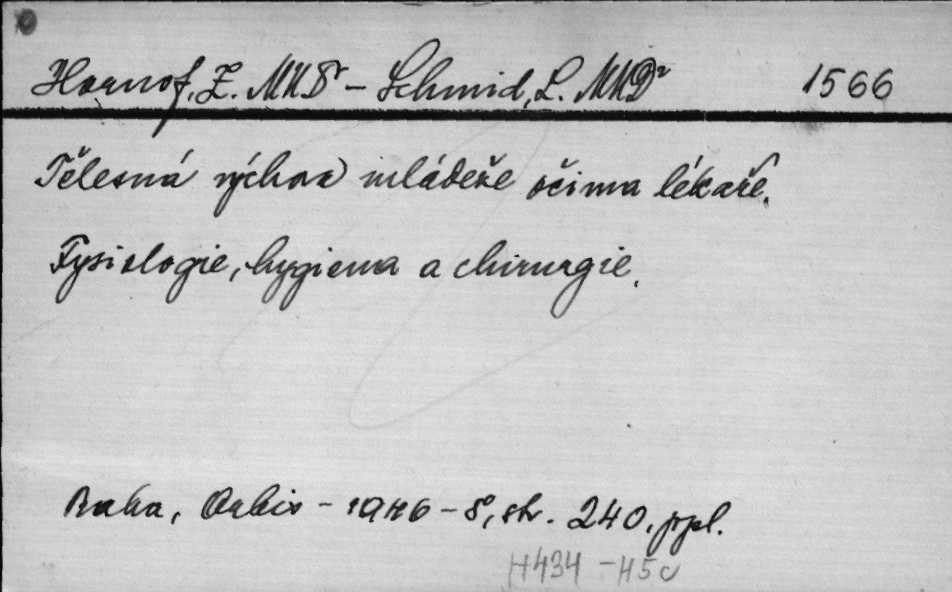 Hornof, Z. MUDr – Schmid, L. MUDr 1566
Tělesná výchova mládeže očima lékaře.
Fysiologie, hygiena a chirurgie.
Praha, Orbis – 1946 – 8, str. 240, ppl.
H434 – H5c